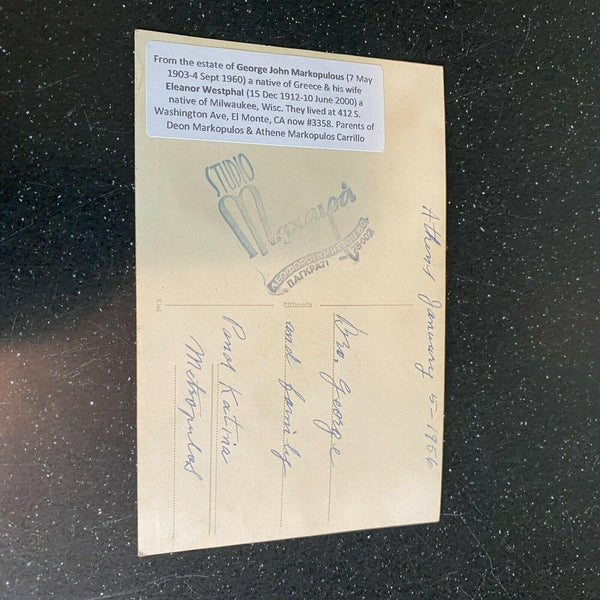 From the estate of George John Markopulous (7 May
1903-4 Sept 1960) a native of Greece & his wife
Eleanor Westphal (15 Dec 1912-10 June 2000) a
native of Milwaukee, Wisc. They lived at 412 S.
Washington Ave, El Monte, CA now #3358. Parents of
Deon Markopulos & Athene Markopulos Carrillo
STUDIO
ΠΑΓΚΡΑΤΙ
Athens January 5-1956
Bro, George
and family
P and Katina
Metropulos